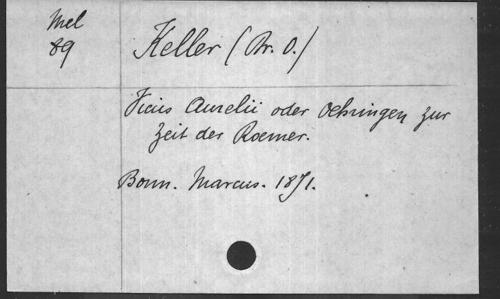 Mel
89
Keller (Dr. O.)
Vicus Aurelii oder Oehringen zur
Zeit der Roemer.
Bonn. Marcus. 1871.